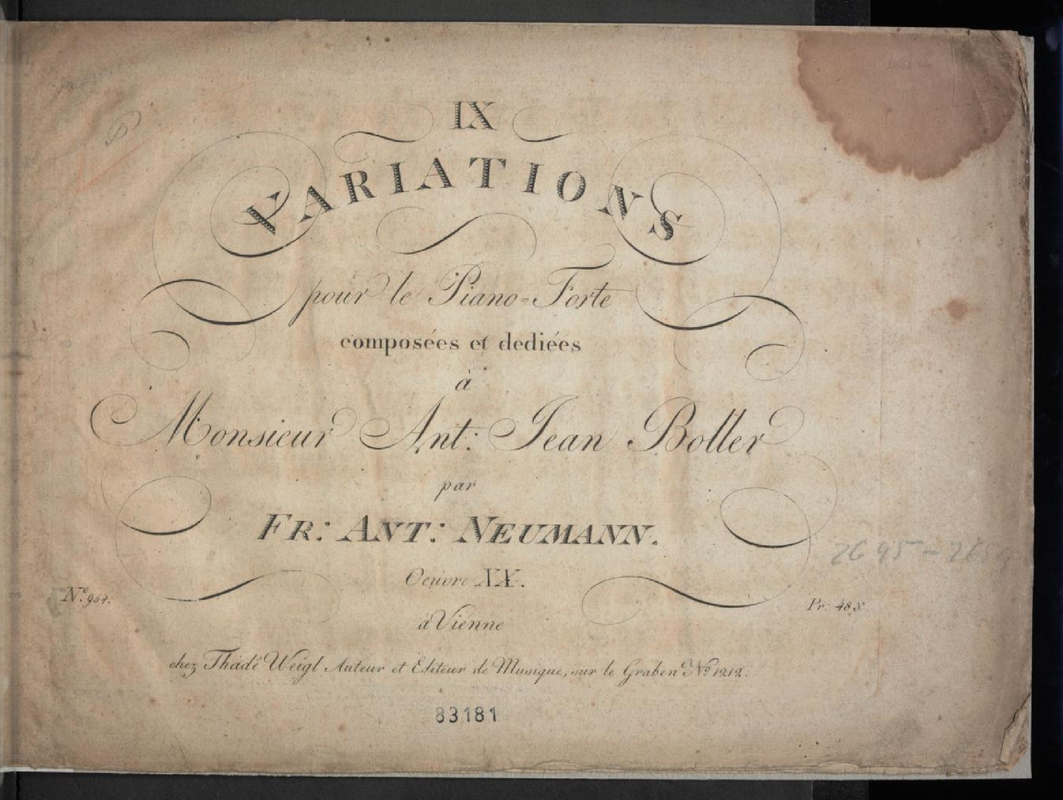 IX
VARIATIONS
pour le Piano=Forte
composées et dediées
à
Monsieur Ant: Jean Boller
par
FR: ANT: NEUMANN.
Oeuvre XX.
No. 954.
Pr: 48 x
à Vienne
chez Thadé Weigl Auteur et Editeur de Musique, sur le Graben No 1212.
83181